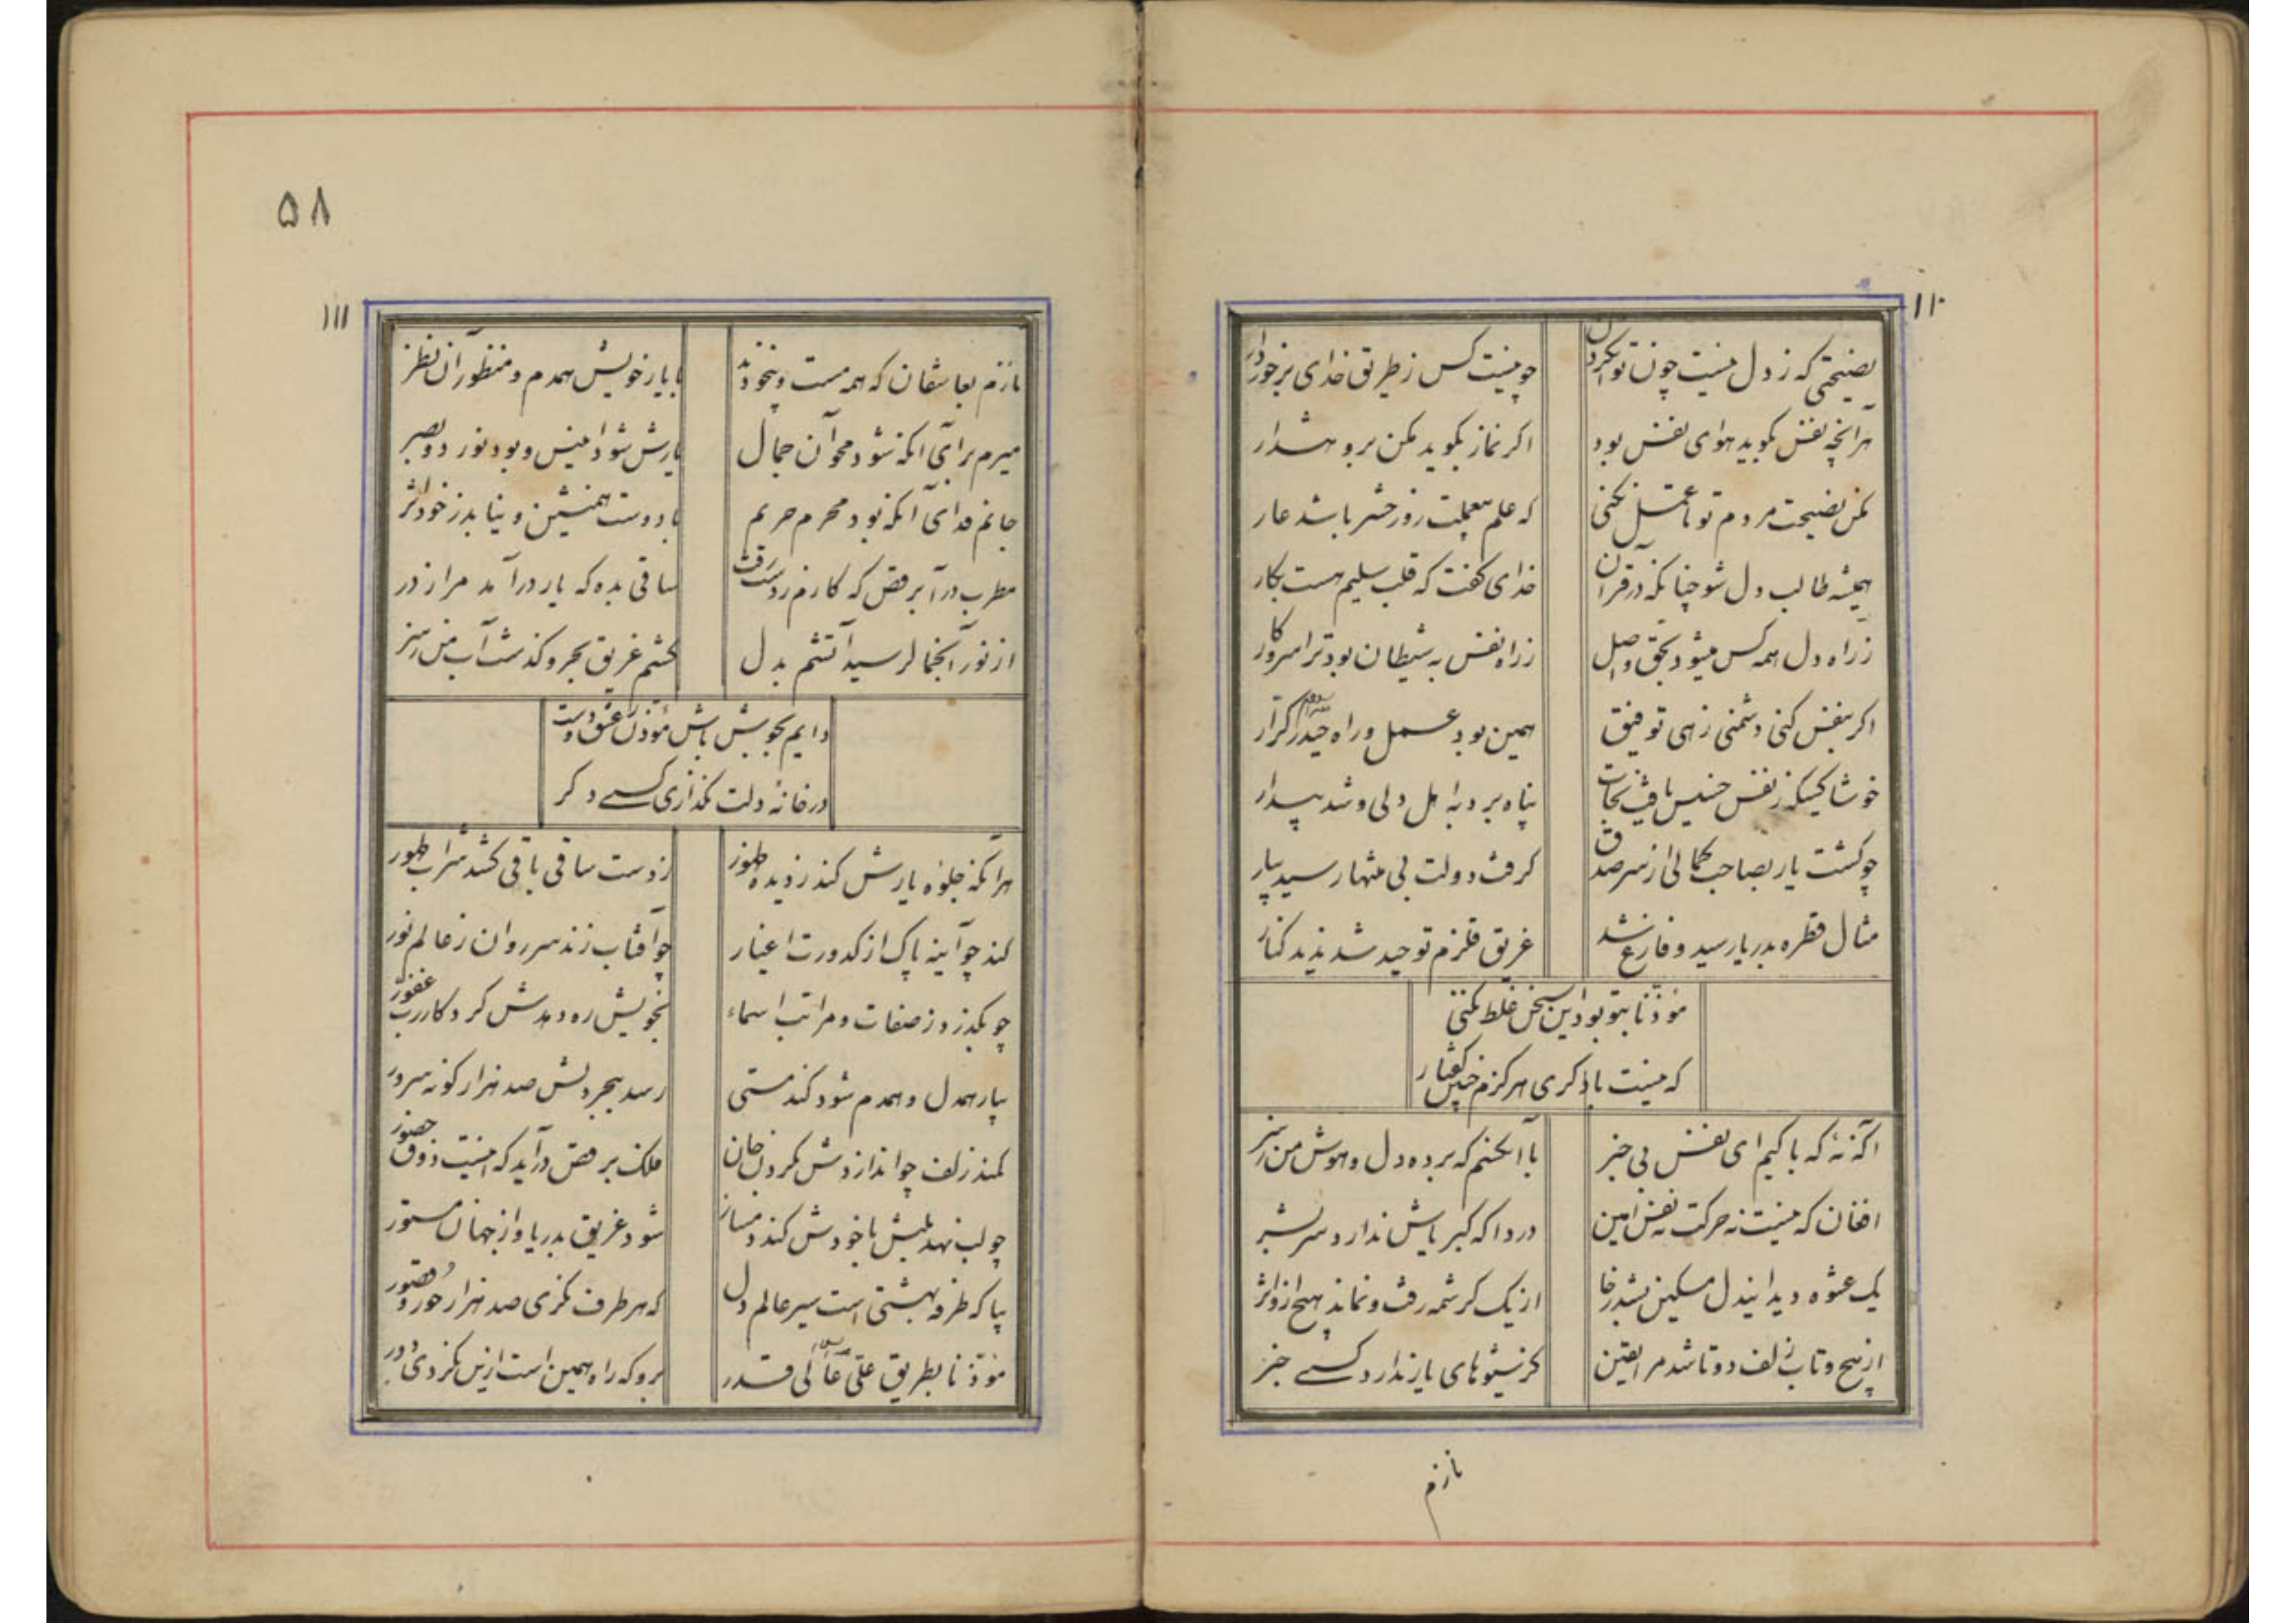 ۱۱۰
نصیحتی که ز دل نیست چون توان کردن
چو نیست کس ز طریق خدای برخوردار
هر آنچه نفس بگوید هوای نفس بود
اگر نماز بگوید مکن برو هشدار
مکن نصیحت مردم تو تا عمل نکنی
که علم بیعملت روز حشر باشد عار
همیشه طالب دل شو چنانکه در قرآن
خدای گفت که قلب سلیم هست بکار
ز راه دل همه کس میشود بحق واصل
ز راه نفس به شیطان بود ترا سروکار
اگر بنفس کنی دشمنی زهی توفیق
همین بود عمل و راه حیدر کرار
خوشا کسیکه ز نفس خسیس یافت نجات
پناه برد به اهل دلی و شد بیدار
چو گشت یار بصاحب کمالی از سر صدق
گرفت دولت بی منتها رسید بیار
مثال قطره بدریا رسید و فارغ شد
غریق قلزم توحید شد ندید کنار
مؤذنا بتو بود این سخن غلط نکنی
که نیست با دگری هرگزم چنین گفتار
آگه نهٔ که با کیم ای نفس بی خبر
با آنکنم که برده دل و هوش من ز سر
افغان که نیست نه حرکت نه نفس امین
دردا که کبریاش ندارد سر بشر
یک عشوه دید ایندل مسکین بشد ز جا
از یک کرشمه رفت و نماند هیچ ازو اثر
از پیچ و تاب زلف دوتا شد مرا یقین
کز شیوهای یار ندارد کسی خبر
نازم
۵۸
۱۱۱
نازم بعاشقان که همه مست و بیخودند
با یار خویش همدم و منظور آن نظر
میرم برای آنکه شود محو آن جمال
یارش شود انیس و بود نور دو بصر
جانم فدای آنکه بود محرم حریم
با دوست همنشین و نیابد ز خود اثر
مطرب درآ برقص که کارم ز دست رفت
ساقی بده که یار درآمد مرا ز در
از نور آنجمال رسید آتشم بدل
گشتم غریق بحر و گذشت آب من ز سر
دایم بخویش باش مؤذن عشق دوست
در خانهٔ دلت نگذاری کسی دگر
هر آنکه جلوه یارش کند ز دیده ظهور
ز دست ساقی باقی کشد شراب طهور
کند چو آینه پاک از کدورت اغیار
چو آفتاب زند سر روان ز عالم نور
چو بگذرد ز صفات و مراتب اسماء
بخویش ره دهدش کردکار رب غفور
بیار همدل و همدم شود کند مستی
رسد ببحر دلش صد هزار گونه سرور
کمند زلف چو اندازدش بگردن جان
ملک برقص درآید که اینست ذوق حضور
چو لب نهد بلبش با خودش کند دمساز
شود غریق بدریا و از جهان مستور
بیا که طرفه بهشتی است سیر عالم دل
که هر طرف نگری صد هزار حور و قصور
مؤذنا بطریق علی عالی قدر
برو که راه همین است ازین نگردی دور